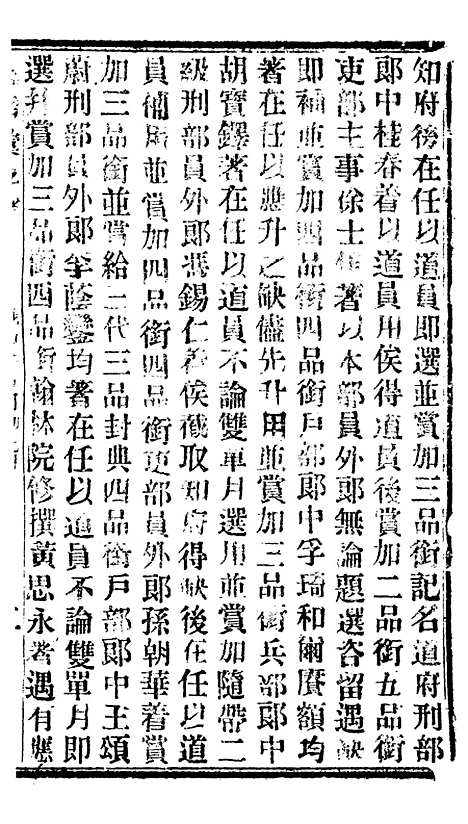 知府後在任以道員即選並賞加三品銜記名道府刑部
郎中桂春着以道員用俟得道員後賞加二品銜五品銜
吏部主事徐士佳著以本部員外郎無論題選咨留遇缺
即補並賞加四品銜四品銜戶部郎中孚琦和爾賡額均
著在任以應升之缺儘先升用並賞加三品銜兵部郎中
胡寶鐸著在任以道員不論雙單月選用並賞加隨帶二
級刑部員外郎馮錫仁着俟截取知府得缺後在任以道
員補用並賞加四品銜四品銜吏部員外郎孫朝華着賞
加三品銜並賞給二代三品封典四品銜戶部郎中王頌
蔚刑部員外郎李蔭鑾均著在任以道員不論雙單月即
選並賞加三品銜四品銜翰林院修撰黃思永著遇有應